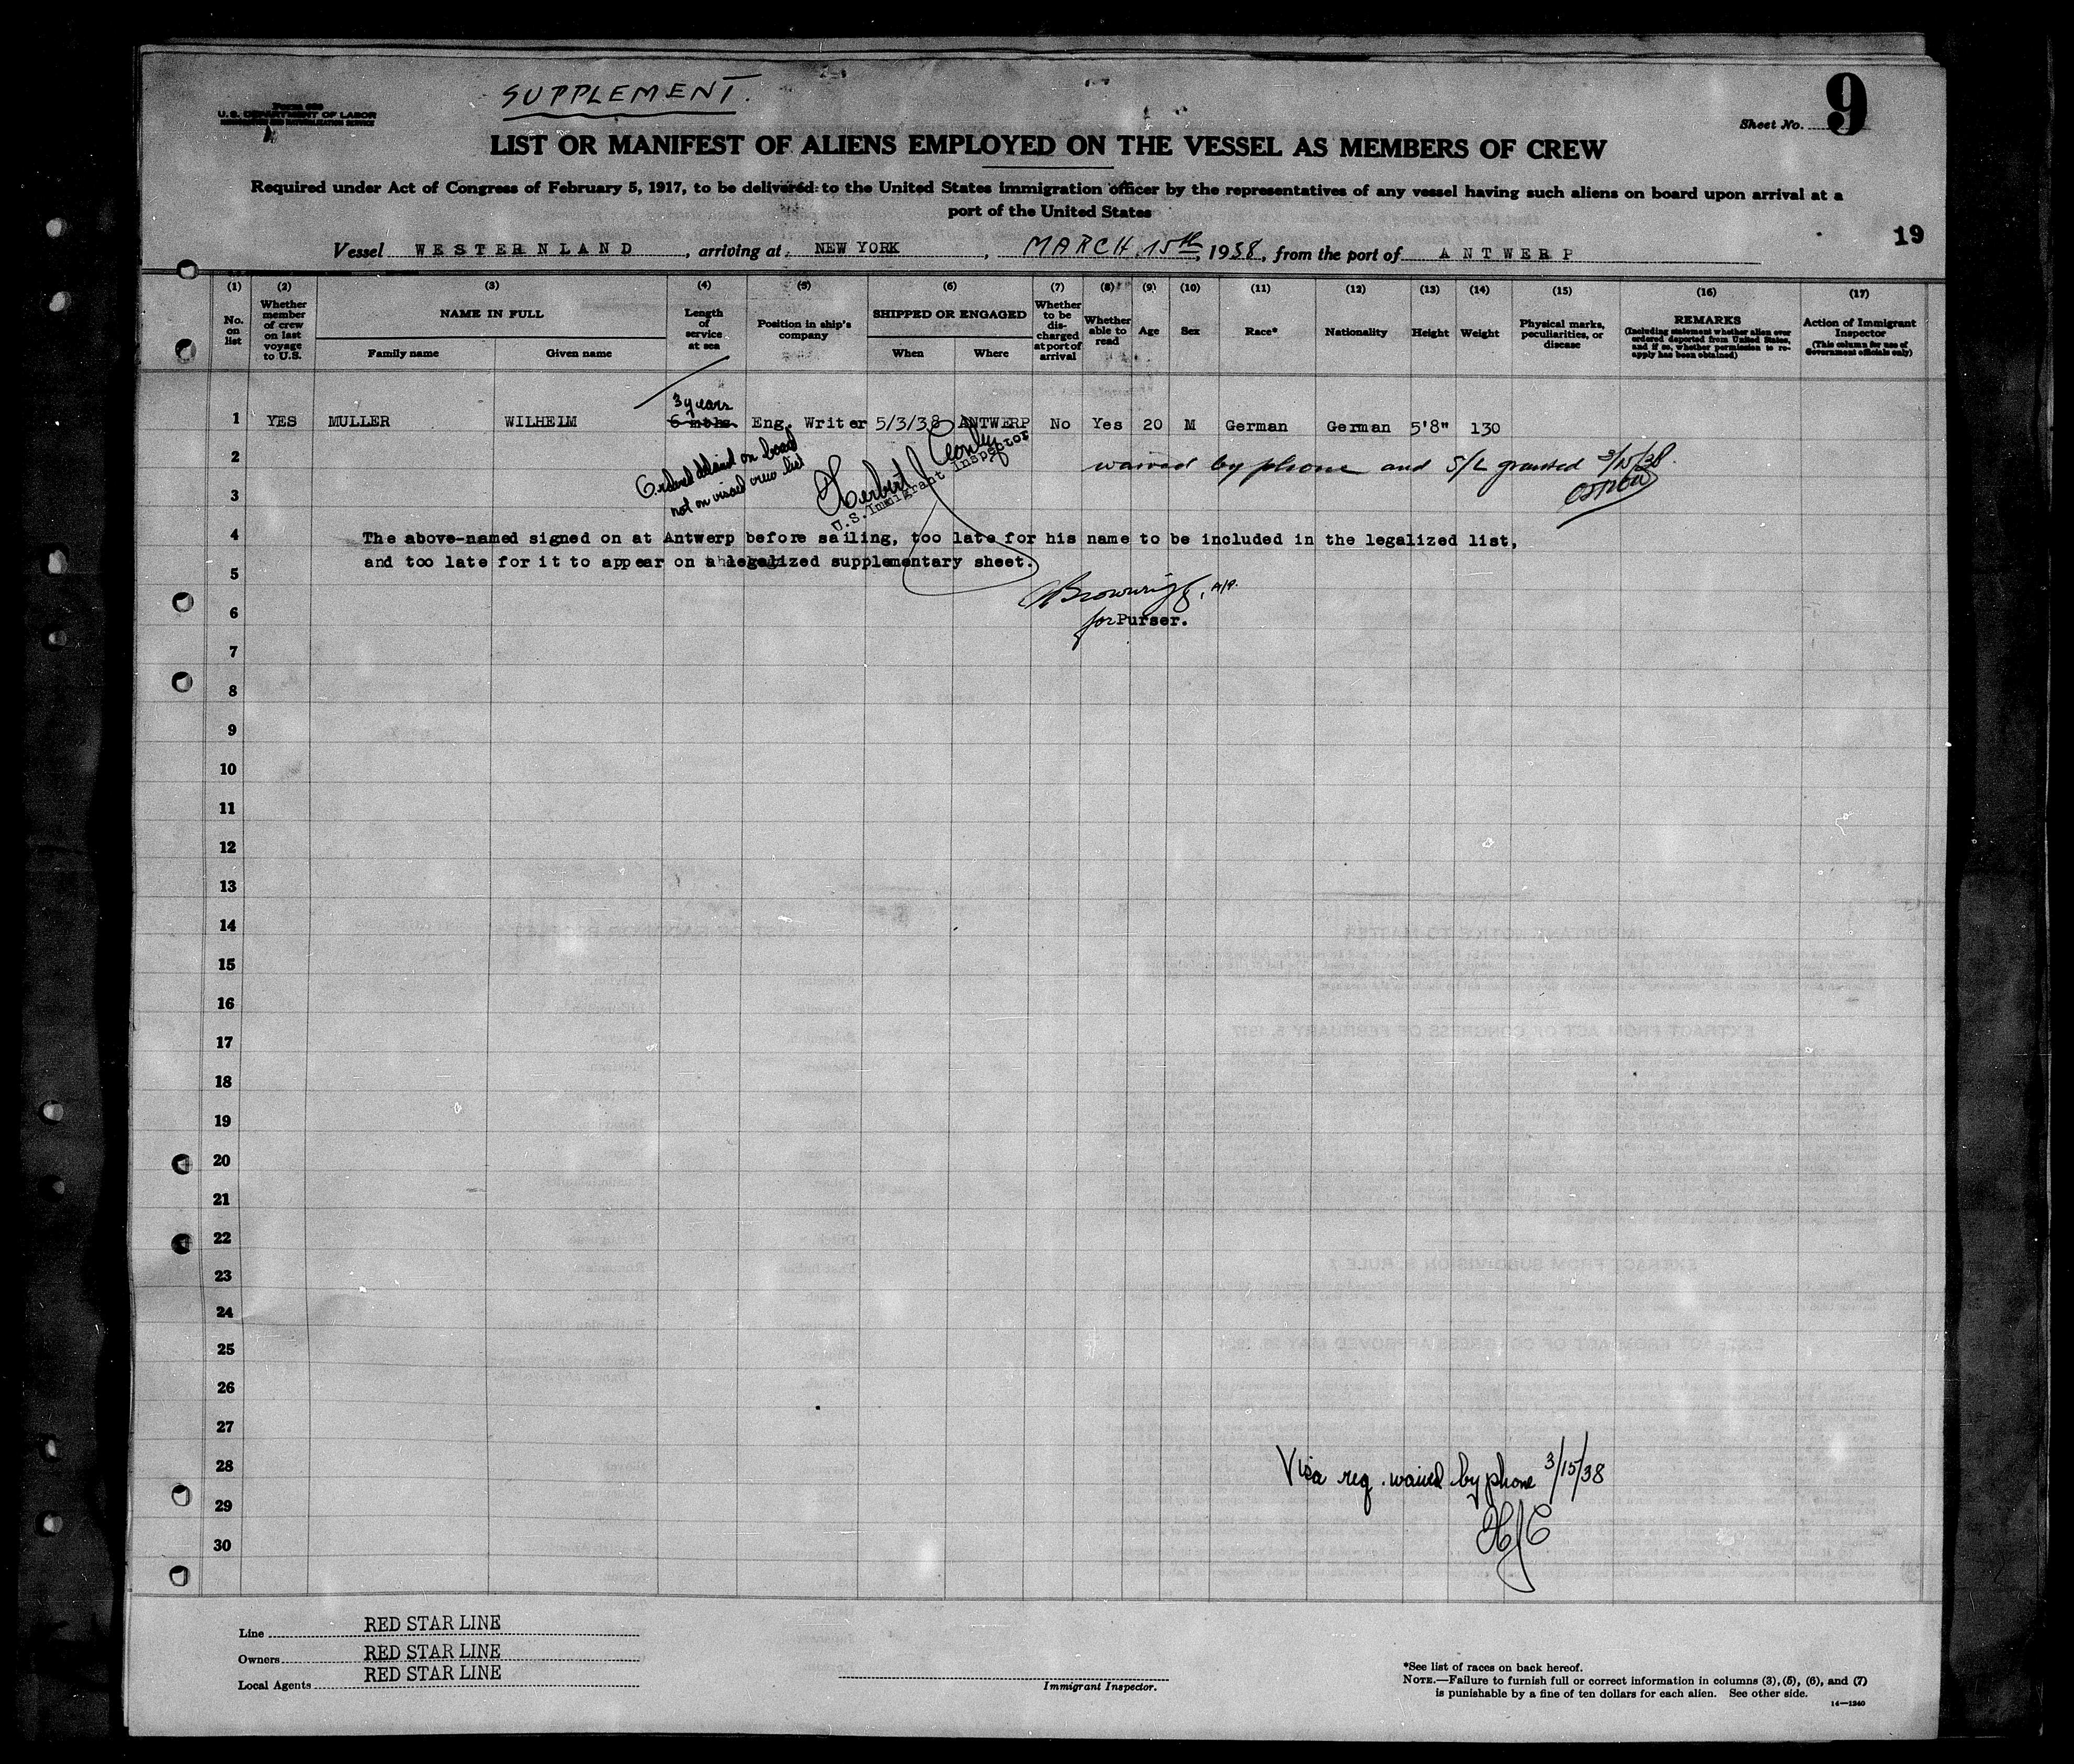 SUPPLEMENT.
9
Form 680
U. S. DEPARTMENT OF LABOR
IMMIGRATION AND NATURALIZATION SERVICE
Sheet No.
LIST OR MANIFEST OF ALIENS EMPLOYED ON THE VESSEL AS MEMBERS OF CREW
Required under Act of Congress of February 5, 1917, to be delivered to the United States immigration officer by the representatives of any vessel having such aliens on board upon arrival at a
port of the United States
19
Vessel WESTERNLAND, arriving at NEW YORK, MARCH 15th, 1938, from the port of ANTWERP
(1) (2) (3) (4) (5) (6) (7) (8) (9) (10) (11) (12) (13) (14) (15) (16) (17)
No. on list
Whether member of crew on last voyage to U.S.
NAME IN FULL
Family name
Given name
Length of service at sea
Position in ship's company
SHIPPED OR ENGAGED
When
Where
Whether to be discharged at port of arrival
Whether able to read
Age
Sex
Race*
Nationality
Height
Weight
Physical marks, peculiarities, or disease
REMARKS
(Including statement whether alien ever ordered deported from United States, and if so, whether permission to reapply has been obtained)
Action of Immigrant Inspector
(This column for use of Government officials only)
3 years
1 YES MULLER WILHELM 6 mths. Eng. Writer 5/3/38 ANTWERP No Yes 20 M German German 5'8" 130
2 waived by phone and S/L granted 3/15/38.
Ordered detained on board
not on visaed crew list
Herbert J Conley
U.S. Immigrant Inspector
3
4 The above-named signed on at Antwerp before sailing, too late for his name to be included in the legalized list,
and too late for it to appear on a legalized supplementary sheet.
5
6 for Purser.
7
8
9
10
11
12
13
14
15
16
17
18
19
20
21
22
23
24
25
26
27
28 Visa req. waived by phone 3/15/38
29 HJC
30
Line RED STAR LINE
Owners RED STAR LINE
Local Agents RED STAR LINE
Immigrant Inspector.
*See list of races on back hereof.
NOTE.—Failure to furnish full or correct information in columns (3), (5), (6), and (7)
is punishable by a fine of ten dollars for each alien. See other side.
14—1240